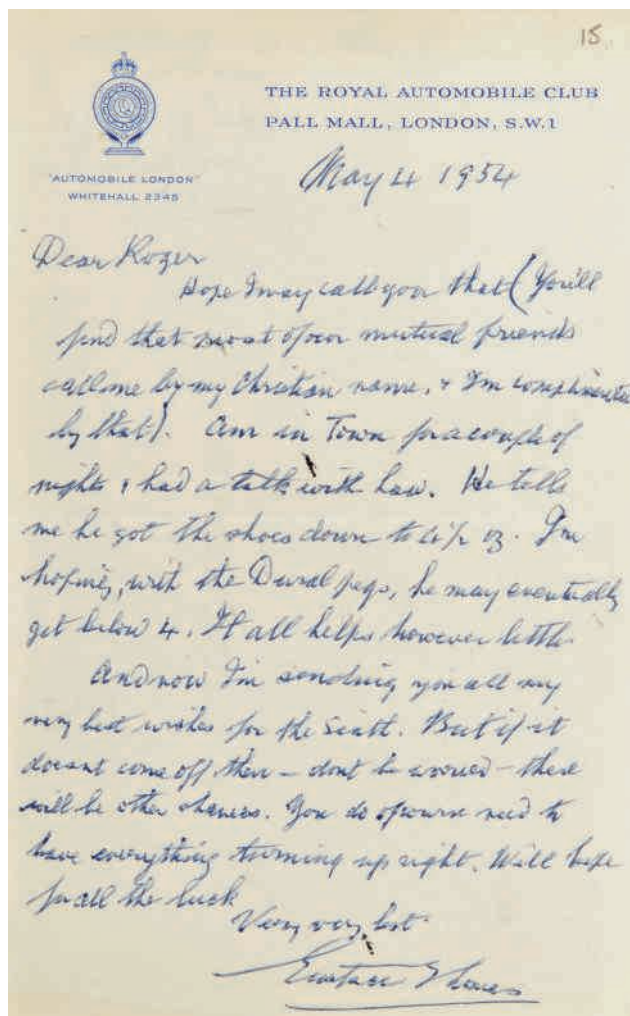 15
THE ROYAL AUTOMOBILE CLUB
PALL MALL, LONDON, S.W.1
"AUTOMOBILE LONDON"
WHITEHALL 2345
May 4 1954
Dear Roger
Hope I may call you that (You'll
find that most of our mutual friends
call me by my Christian name, & I'm complimented
by that). Am in Town for a couple of
nights & had a talk with Law. He tells
me he got the shoes down to 4½ oz. I'm
hoping, with the Dural pegs, he may eventually
get below 4. It all helps however little.
And now I'm sending you all my
very best wishes for the Sixth. But if it
doesnt come off then – dont be worried – there
will be other chances. You do of course need to
have everything turning up right. Will hope
for all the luck
Very very best.
Eustace Thomas